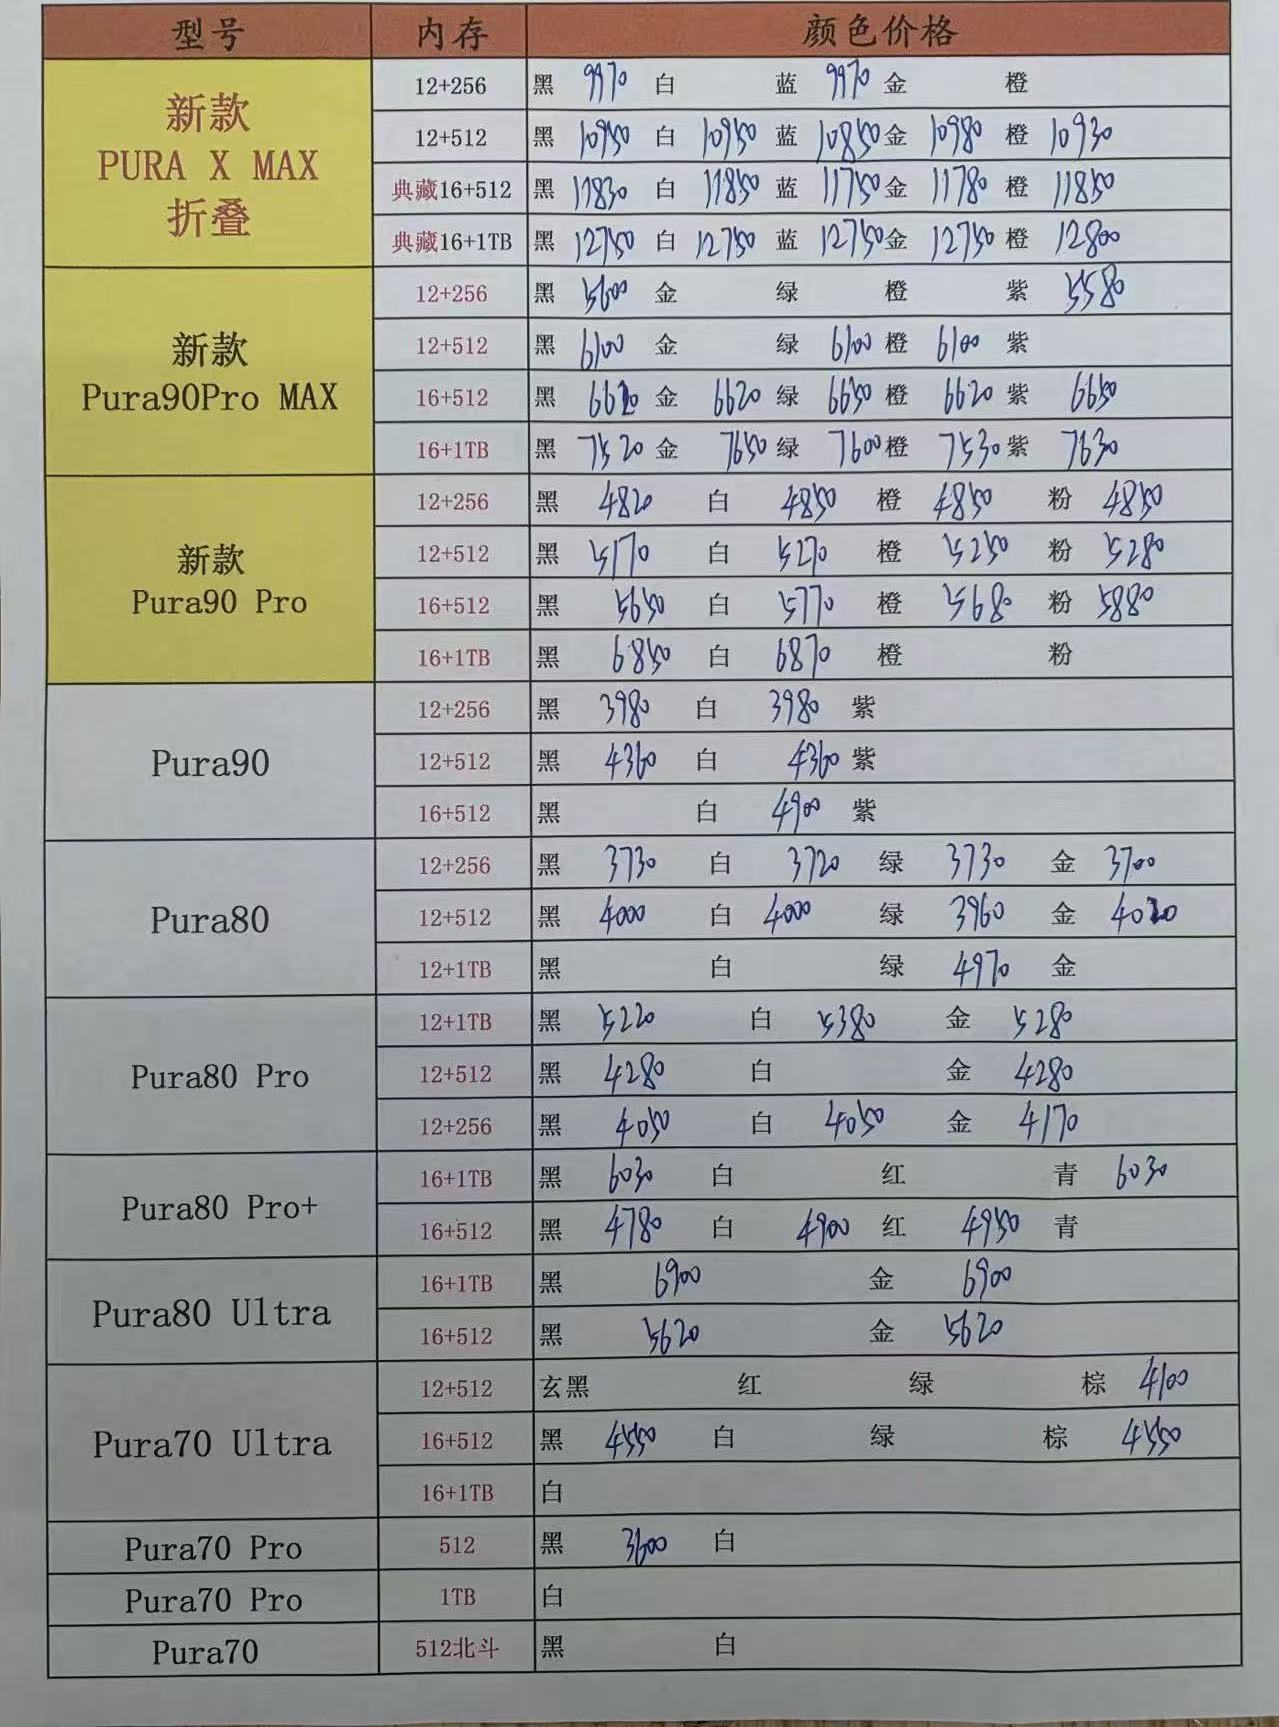 型号 内存 颜色价格
新款 PURA X MAX 折叠
12+256 黑 9970 白 蓝 9970 金 橙
12+512 黑 10950 白 10950 蓝 10850 金 10980 橙 10930
典藏16+512 黑 11830 白 11850 蓝 11750 金 11780 橙 11850
典藏16+1TB 黑 12750 白 12750 蓝 12750 金 12750 橙 12800
新款 Pura90Pro MAX
12+256 黑 5600 金 绿 橙 紫 5580
12+512 黑 6100 金 绿 6100 橙 6100 紫
16+512 黑 6620 金 6620 绿 6650 橙 6620 紫 6650
16+1TB 黑 7520 金 7650 绿 7600 橙 7530 紫 7630
新款 Pura90 Pro
12+256 黑 4820 白 4850 橙 4850 粉 4850
12+512 黑 5170 白 5270 橙 5250 粉 5280
16+512 黑 5650 白 5770 橙 5680 粉 5880
16+1TB 黑 6850 白 6870 橙 粉
Pura90
12+256 黑 3980 白 3980 紫
12+512 黑 4360 白 4360 紫
16+512 黑 白 4900 紫
Pura80
12+256 黑 3730 白 3720 绿 3730 金 3700
12+512 黑 4000 白 4000 绿 3960 金 4020
12+1TB 黑 白 绿 4970 金
Pura80 Pro
12+1TB 黑 5220 白 5380 金 5280
12+512 黑 4280 白 金 4280
12+256 黑 4050 白 4050 金 4170
Pura80 Pro+
16+1TB 黑 6030 白 红 青 6030
16+512 黑 4780 白 4900 红 4950 青
Pura80 Ultra
16+1TB 黑 6900 金 6900
16+512 黑 5620 金 5620
Pura70 Ultra
12+512 玄黑 红 绿 棕 4100
16+512 黑 4550 白 绿 棕 4550
16+1TB 白
Pura70 Pro 512 黑 3600 白
Pura70 Pro 1TB 白
Pura70 512北斗 黑 白